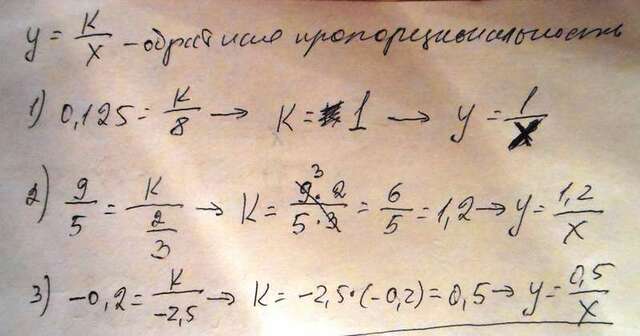 y = K/x - обратная пропорциональность
1) 0,125 = K/8 → K = 1 → y = 1/x
2) 9/5 = K/(2/3) → K = 9·2/5·3 = 6/5 = 1,2 → y = 1,2/x
3) -0,2 = K/-2,5 → K = -2,5·(-0,2) = 0,5 → y = 0,5/x